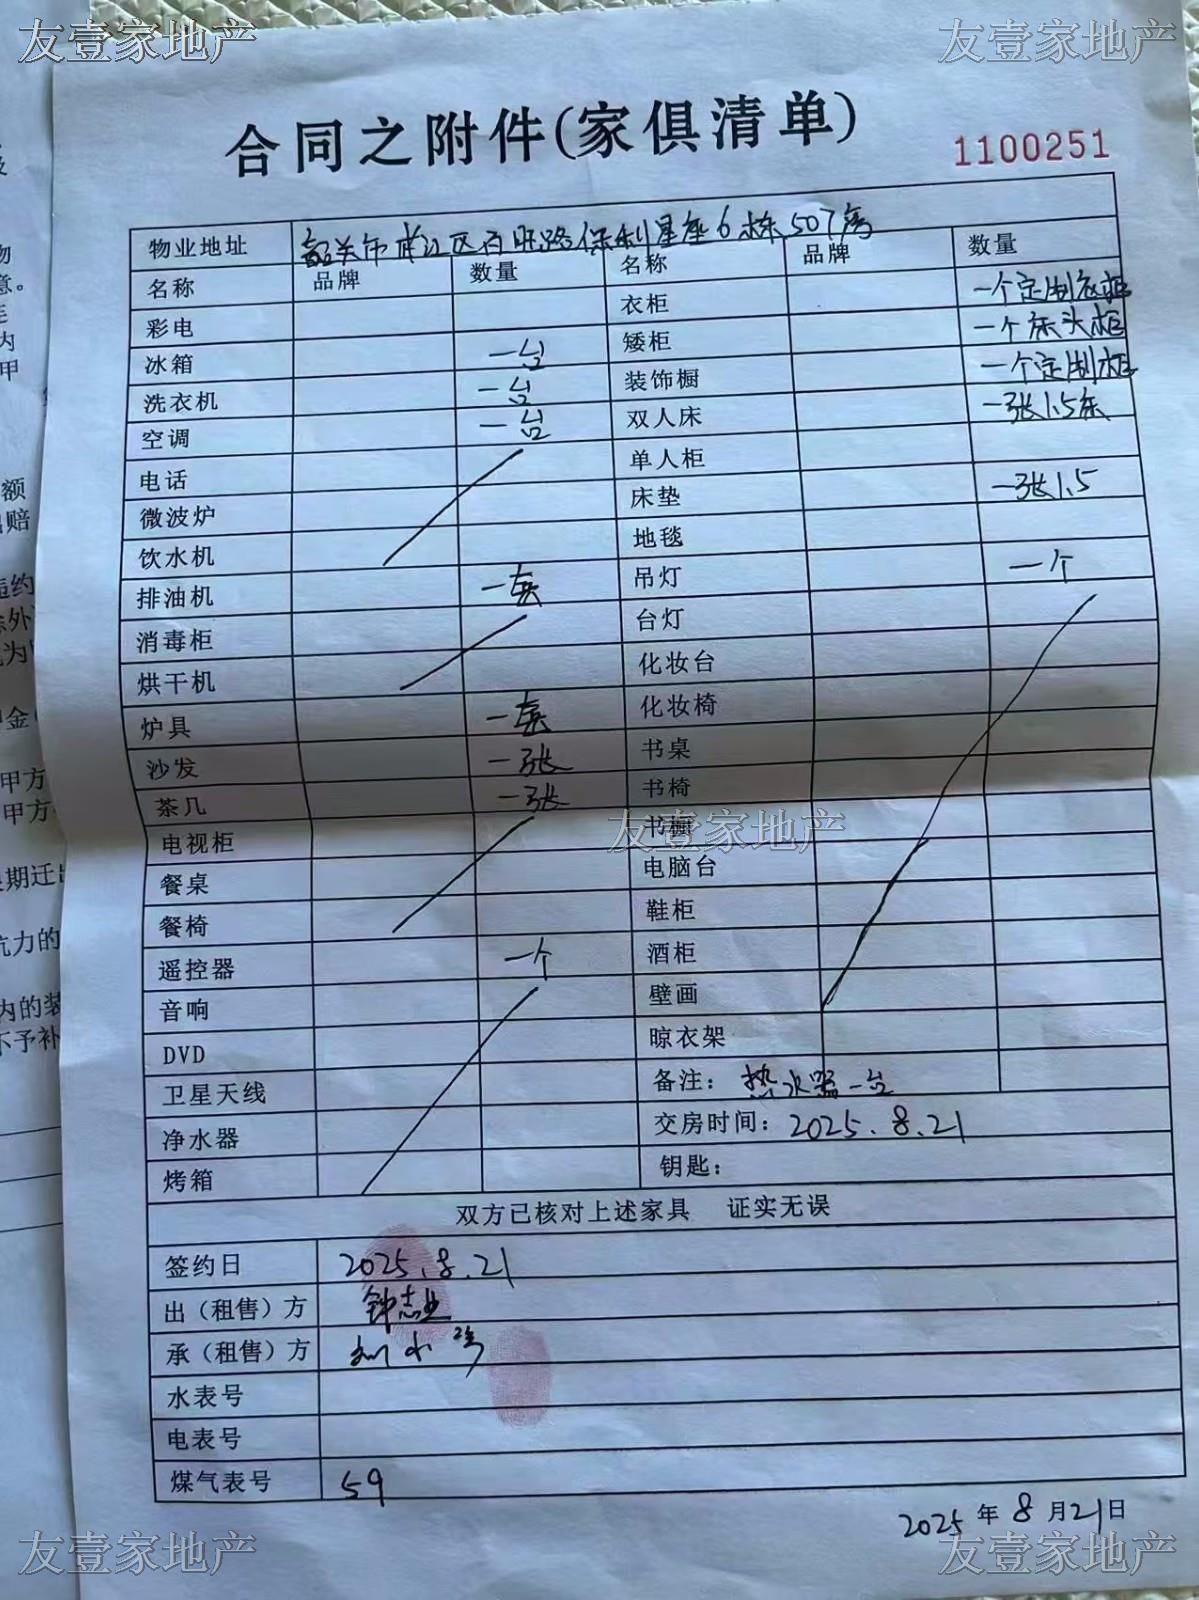 友壹家地产 友壹家地产
合同之附件(家俱清单)
1100251
物业地址 韶关市武江区百旺路保利星座6栋507房
名称 品牌 数量 名称 品牌 数量
彩电 衣柜 一个定制衣柜
冰箱 一台 矮柜 一个床头柜
洗衣机 一台 装饰橱 一个定制柜
空调 一台 双人床 一张1.5床
电话 单人柜
微波炉 床垫 一张1.5
饮水机 地毯
排油机 一套 吊灯 一个
消毒柜 台灯
烘干机 化妆台
炉具 一套 化妆椅
沙发 一张 书桌
茶几 一张 书椅
电视柜 书橱
友壹家地产
餐桌 电脑台
餐椅 鞋柜
遥控器 一个 酒柜
音响 壁画
DVD 晾衣架
卫星天线 备注：热水器一台
净水器 交房时间：2025.8.21
烤箱 钥匙：
双方已核对上述家具 证实无误
签约日 2025.8.21
出（租售）方 钟志业
承（租售）方
水表号
电表号
煤气表号 59
2025年8月21日
友壹家地产 友壹家地产